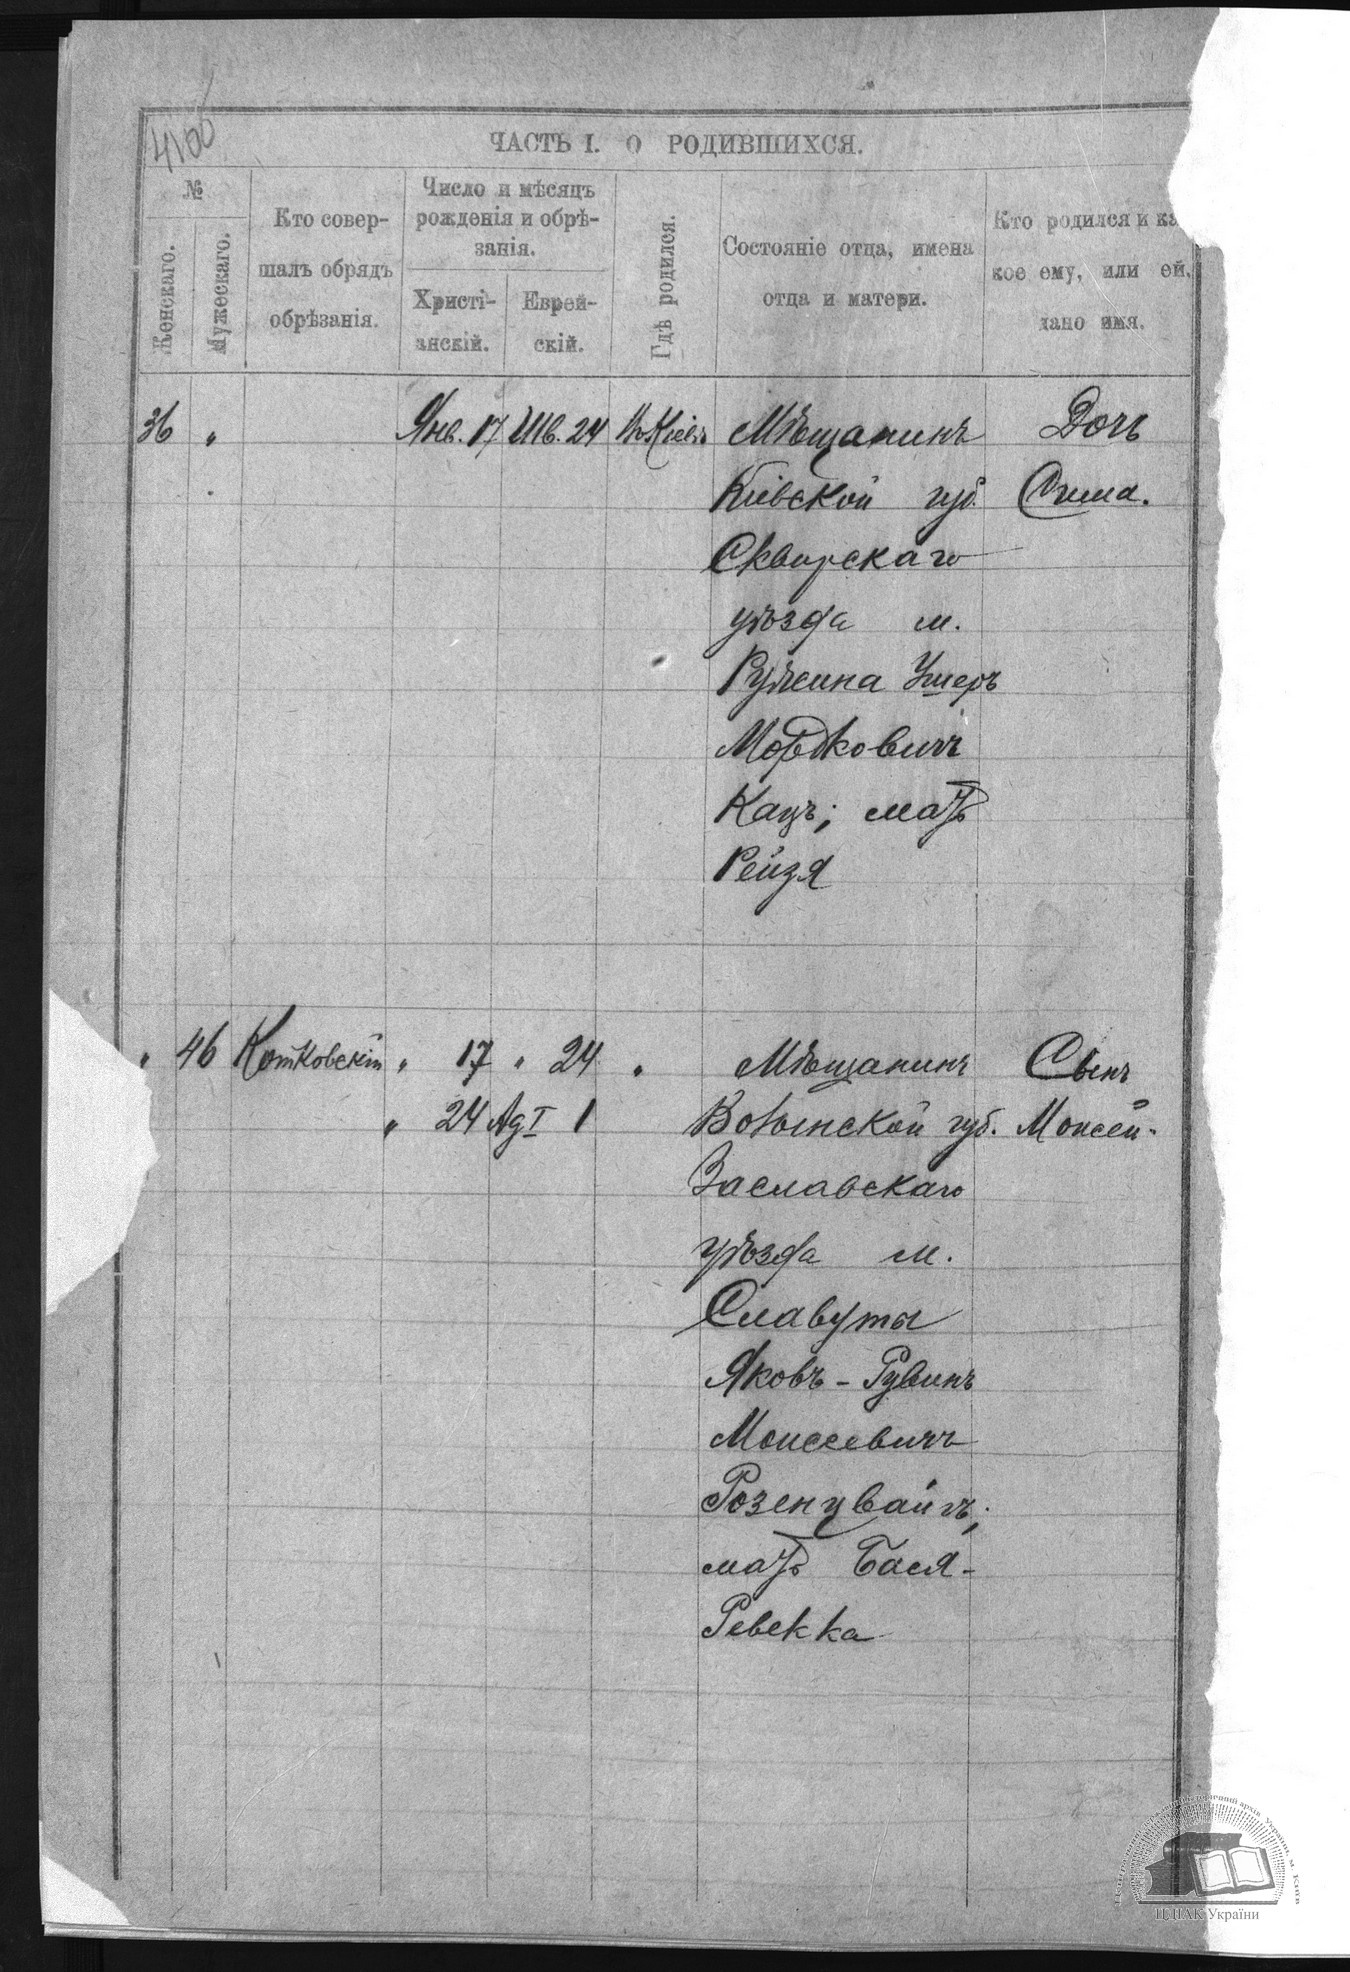 ЧАСТЬ I. О РОДИВШИХСЯ.
№
Женскаго.
Мужескаго.
Кто совер-
шалъ обрядъ
обрѣзанія.
Число и мѣсяцъ
рожденія и обрѣ-
занія.
Христі-
анскій.
Еврей-
скій.
Гдѣ родился.
Состояніе отца, имена
отца и матери.
Кто родился и ка
кое ему, или ей,
дано имя.
36 " Янв. 17 Шв. 24 Въ Кіевѣ Мѣщанинъ Дочь
Кіевской губ. Сима.
Сквирскаго
уѣзда м.
Ружина Ушеръ
Мордковичъ
Кацъ; мать
Рейзя
" 46 Котковскій " 17 " 24 " Мѣщанинъ Сынъ
" 24 Ад I 1 Волынской губ. Моисей.
Заславскаго
уѣзда м.
Славуты
Яковъ-Рувинъ
Моисеевичъ
Розенцвайгъ;
мать Бася-
Ревекка
ЦДІАК України